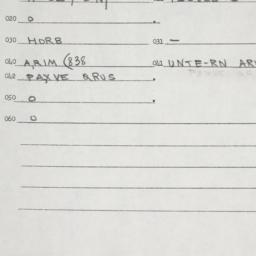 020 0
030 HORB 031 —
040 ARIM (838 041 UNTE-RN AR
042 PAXVE QRUS
050 0
060 0